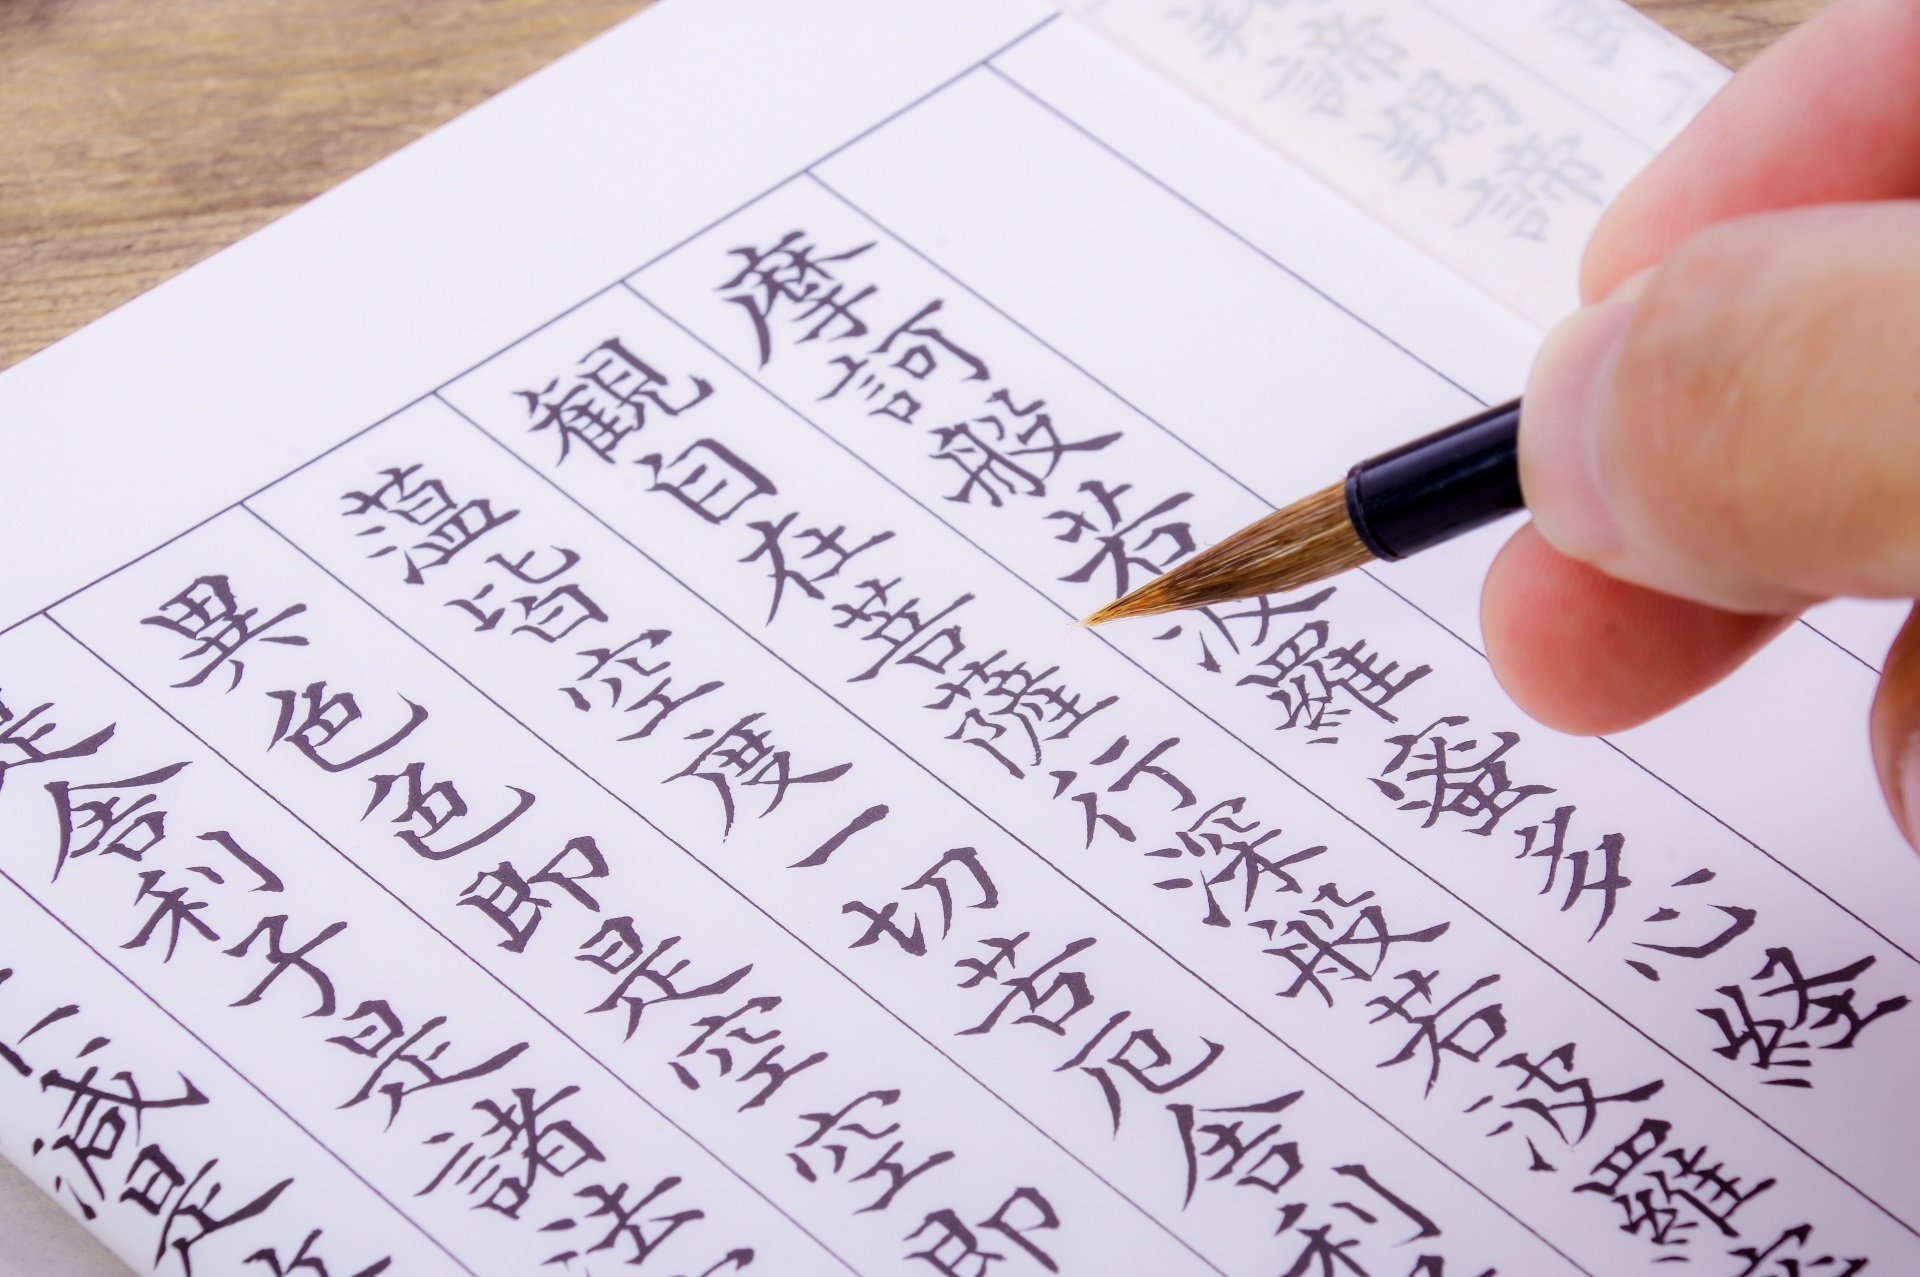 摩訶般若波羅蜜多心経
観自在菩薩行深般若波羅蜜
蘊皆空度一切苦厄舎利
異色色即是空空即
是舎利子是諸法
減是故
羯諦羯諦